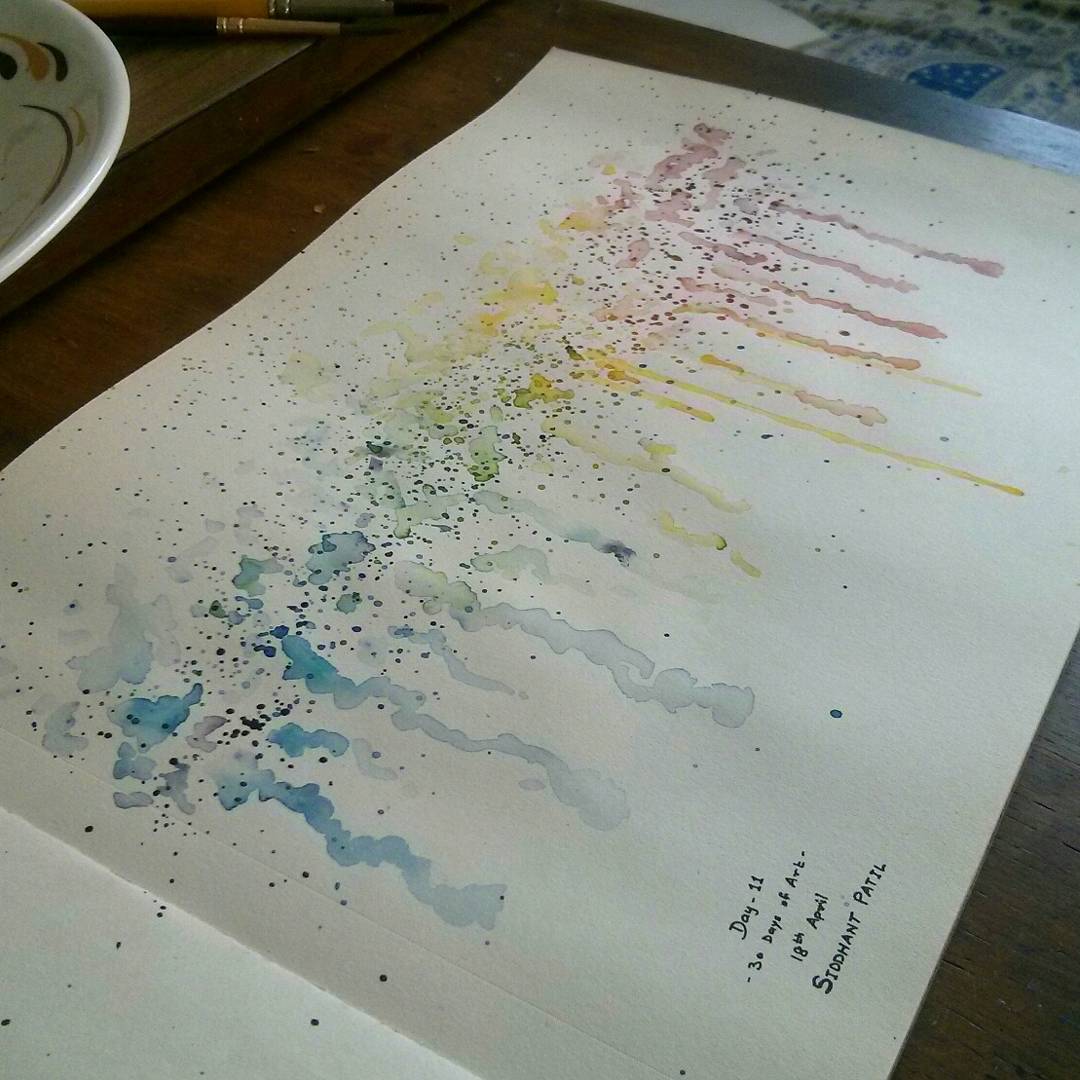 Day-11
- 30 Days of Art -
18th April
SIDDHANT PATIL